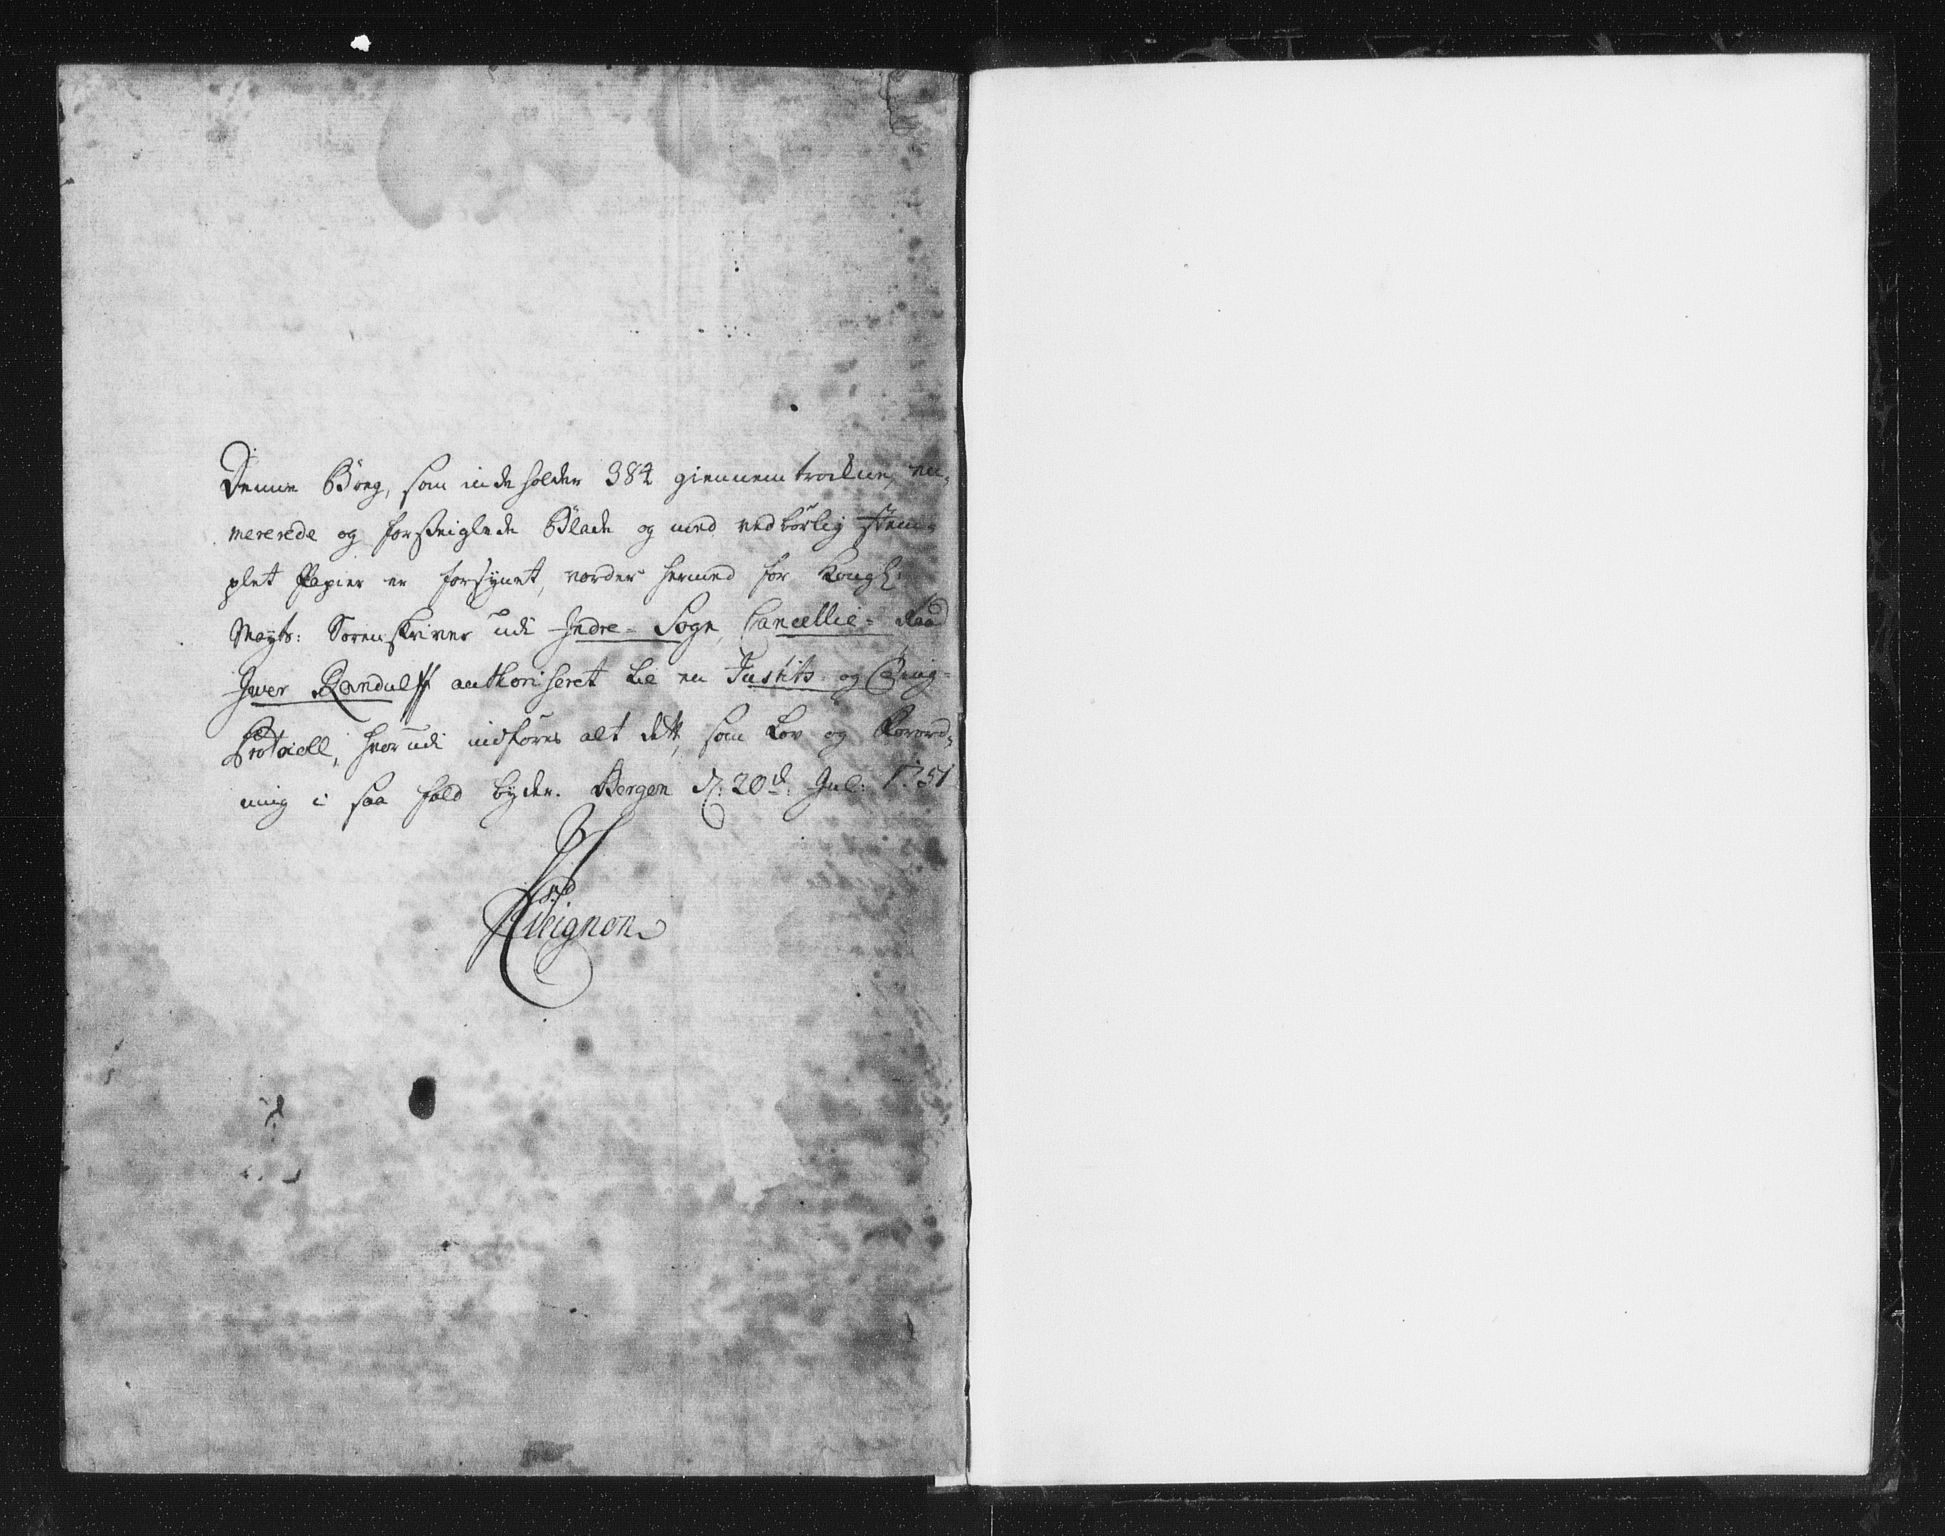 Denne Bog, som indeholder 384 giennemtrokne, nu-
mererede og forseiglede Blade og med vedbörlig stem-
plet Papier er forsÿnet, vorder hermed for Kongl:
Mayts: Sorenskriver udi Indre-Sogn, Cancellie-Raad
Iver Randulff authoriseret til en Justits- og Ting-
Protocoll, hvorudi indföres alt dett, som Lov og Forord-
ning i saa fald byder. Bergen d: 20de: Jul: 1751